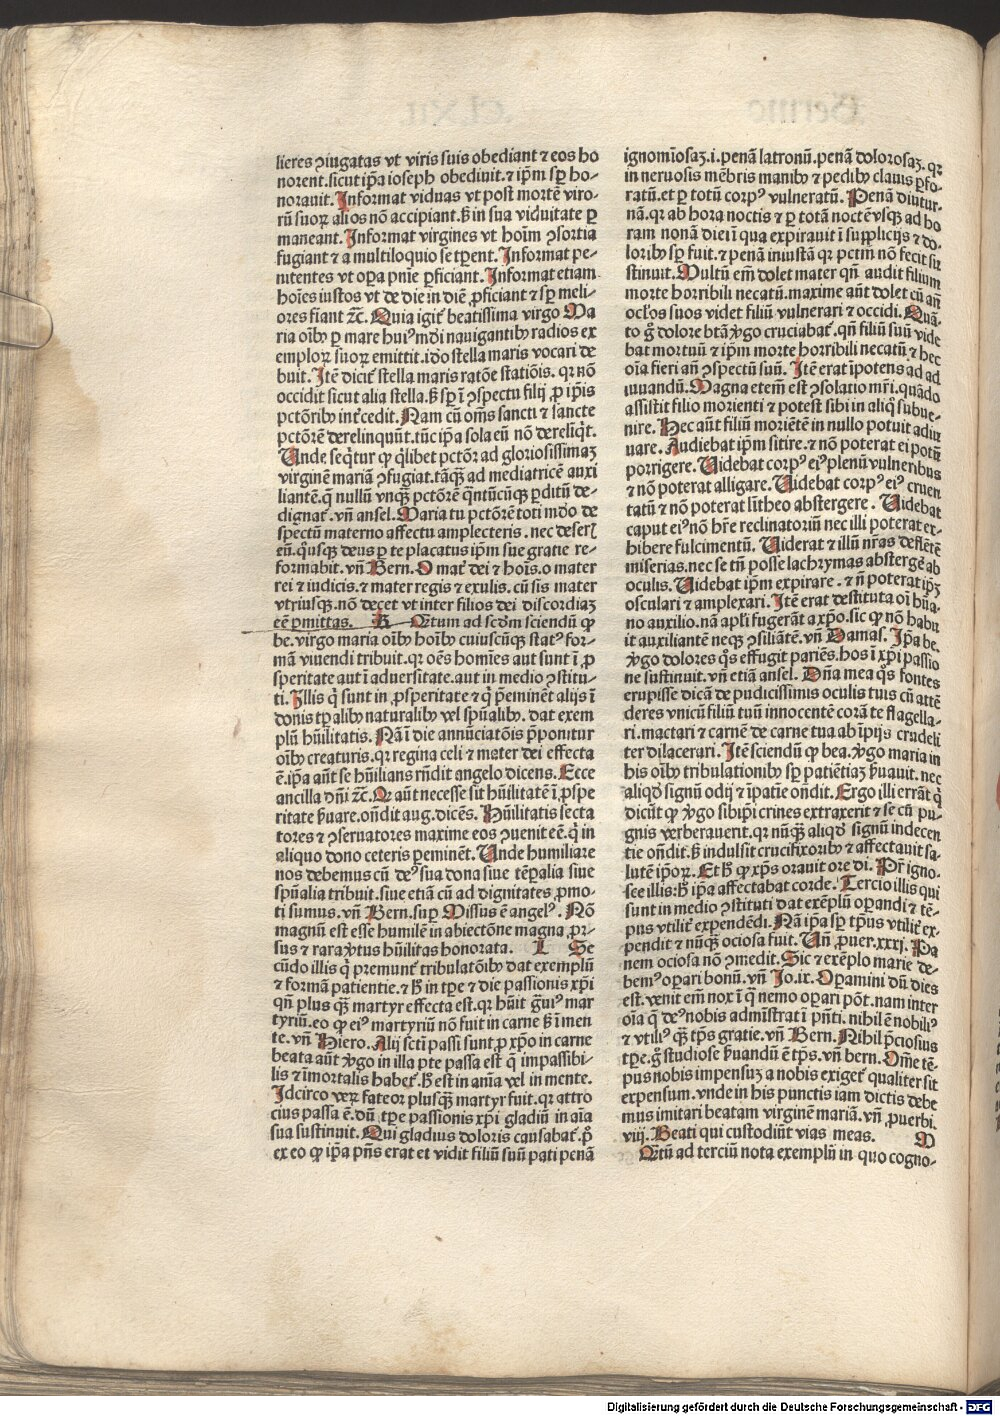 lieres ꝯiugatas vt viris suis obediant ⁊ eos ho
norent. sicut ip̄a ioseph obediuit. ⁊ ip̄m sp̱ ho-
norauit. Informat viduas vt post mortē viro-
rū suoꝝ alios nō accipiant. s̄ in sua viduitate ꝑ
maneant. Informat virgines vt hoīm ꝯsortia
fugiant ⁊ a multiloquio se tꝑent. Informat pe-
nitentes vt oꝑa pn̄ie ꝑficiant. Informat etiam
hoīes iustos vt de die in diē ꝓficiant ⁊ sp̱ meli-
ores fiant ⁊c̄. Quia igit᷑ beatissima virgo Ma
ria oīb₉ ꝑ mare hui⁹ mūdi nauigantib₉ radios ex
emploꝝ suoꝝ emittit. iḋo stella maris vocari de
buit. Itē dicit᷑ stella maris ratōe statiōis. qꝛ nō
occidit sicut alia stella. s̄ sp̱ ī ꝯspectu filij ꝓ ip̄is
pctōrib₉ int᷑cedit. Nam cū om̄s sancti ⁊ sancte
pctōrē derelinquūt. tūc ip̄a sola eū nō dereliq̄t.
Unde seq̄tur ꝙ q̄libet pctōꝛ ad gloriosissimaꝫ
virginē mariā ꝯfugiat. tāꝙꝫ ad mediatricē auxi
liantē. q̄ nullū vnqꝫ pctōrē q̄ntūcūqꝫ ꝑditū de-
dignat᷑. vn̄ ansel. Maria tu pctōrē toti mūdo de
spectū materno affectu amplecteris. nec deseris
eū. q̊usqꝫ deus ꝑ te placatus ip̄m sue gratie re-
formabit. vn̄ Bern. O mat᷑ dei ⁊ hoīs. o mater
rei ⁊ iudicis. ⁊ mater regis ⁊ exulis. cū sis mater
vtriusqꝫ. nō decet vt inter filios dei discordiaꝫ
eē ꝑmittas. K Qr̄tum ad scd̄m sciendū ꝙ
be. virgo maria oīb₉ hoīb₉ cuiuscūqꝫ stat⁹ for-
mā viuendi tribuit. qꝛ oēs homīes aut sunt ī ꝓ
speritate aut ī aduersitate. aut in medio ꝯstitu-
ti. Illis q̄ sunt in ꝓsperitate ⁊ q̄ p̄eminēt alijs ī
donis tꝑalib₉ naturalib₉ vel spūalib₉. dat exem
plū hūilitatis. Nā ī die annūciatōis p̄ponitur
oīb₉ creaturis. qꝛ regina celi ⁊ mater dei effecta
ē. ip̄a aūt se hūilians rn̄dit angelo dicens. Ecce
ancilla dn̄i ⁊c̄. Qꝛ aūt necesse sit hūilitatē ī ꝓspe
ritate ẜuare. on̄dit aug. dicēs. Hūilitatis secta
tores ⁊ ꝯseruatores maxime eos ꝯuenit eē. q̄ in
aliquo dono ceteris p̄eminēt. Unde humiliare
nos debemus cū de⁹ sua dona siue tēꝑalia siue
spūalia tribuit. siue etiā cū ad dignitates ꝓmo-
ti sumus. vn̄ Bern. suꝑ Missus ē angel⁹. Nō
magnū est esse humilē in abiectōne magna ꝓr-
sus ⁊ rara ꝟtus hūilitas honorata. L Se
cūdo illis q̄ premunt᷑ tribulatōib₉ dat exemplū
⁊ formā patientie. ⁊ h̄ in tꝑe ⁊ die passionis xp̄i
qn̄ plus qꝫ martyr effecta est. qꝛ hūit g̊ui⁹ mar
tyriū. eo ꝙ ei⁹ martyriū nō fuit in carne s̄ ī men
te. vn̄ Hiero. Alij sct̄i passi sunt ꝓ xp̄o in carne
beata aūt ꝟgo in illa pte passa est q̄ impassibi-
lis ⁊ īmortalis habet᷑. s̄ est in aīa vel in mente.
Idcirco veꝝ fateor plusqꝫ martyr fuit. qꝛ attro
cius passa ē. dū tꝑe passionis xp̄i gladiū in aīa
sua sustinuit. Qui gladius doloris causabat᷑. p̊
ex eo ꝙ ip̄a pn̄s erat et vidit filiū suū pati penā
ignomīosaꝫ. i. penā latronū. penā dolorosaꝫ. qꝛ
in neruosis mēbris manib₉ ⁊ pedib₉ clauis ꝑfo-
ratū. et ꝑ totū corp⁹ vulneratū. Penā diutur-
nā. qꝛ ab hora noctis ⁊ ꝑ totā noctē vsqꝫ ad ho
ram nonā diei ī qua expirauit ī supplicijs ⁊ do-
lorib₉ sp̱ fuit. ⁊ penā iniustā qꝛ pctm̄ nō fecit su
stinuit. Multū em̄ dolet mater qn̄ audit filium
morte horribili necatū. maxime aūt dolet cū añ
ocl̓os suos videt filiū vulnerari ⁊ occidi. Quā-
to g̊ dolore btā ꝟgo cruciabat᷑. qn̄ filiū suū vide
bat mortuū ⁊ ip̄m morte horribili necatū ⁊ hec
oīa fieri an̄ ꝯspectū suū. Itē erat īpotens ad ad
iuuandū. Magna etem̄ est ꝯsolatio mr̄i. quādo
assistit filio morienti ⁊ potest sibi in aliq̊ subue-
nire. Hec aūt filiū moriētē in nullo potuit adiu
uare. Audiebat ip̄m sitire. ⁊ nō poterat ei potū
porrigere. Uidebat corp⁹ ei⁹ plenū vulneribus
⁊ nō poterat alligare. Uidebat corp⁹ ei⁹ cruen
tatū ⁊ nō poterat lītheo abstergere. Uidebat
caput ei⁹ nō hr̄e reclinatoriū nec illi poterat ex-
hibere fulcimentū. Uiderat ⁊ illū nr̄as deflētē
miserias. nec se tn̄ posse lachrymas abstergē ab
oculis. Uidebat ip̄m expirare. ⁊ n̄ poterat ip̄ꝫ
osculari ⁊ amplexari. Itē erat destituta oī hūa-
no auxilio. nā apl̓i fugerāt a xp̄o. sic ꝙ nō habu
it auxiliantē neqꝫ ꝯsiliātē. vn̄ Damas. Ip̄a be.
ꝟgo dolores q̊s effugit pariēs. hos ī xp̄i passio
ne sustinuit. vn̄ etiā ansel. Dn̄a mea q̊s fontes
erupisse dicā de pudicissimis oculis tuis cū attē
deres vnicū filiū tuū innocentē corā te flagella-
ri. mactari ⁊ carnē de carne tua ab īpijs crudeli
ter dilacerari. Itē sciendū ꝙ bea. ꝟgo maria in
his oīb₉ tribulationib₉ sp̱ patiētiaꝫ ẜuauit. nec
aliqḋ signū odij ⁊ īpatiē on̄dit. Ergo illi errāt q̄
dicūt ꝙ ꝟgo sibiip̄i crines extraxerit ⁊ se cū pu-
gnis verberauerit. qꝛ nūqꝫ aliqḋ signū indecen
tie on̄dit. s̄ indulsit crucifixorib₉ ⁊ affectauit sa-
lutē ip̄oꝝ. Et h̄ ꝙ xp̄s orauit ore di. Pr̄ igno-
sce illis: h̄ ip̄a affectabat corde. Tercio illis qui
sunt in medio ꝯstituti dat exēplū oꝑandi ⁊ tē-
pus vtilit᷑ expendēdi. Nā ip̄a sp̱ tp̄us vtilit᷑ ex-
pendit ⁊ nūqꝫ ociosa fuit. Un̄ ꝓuer. xxxj. Pa
nem ociosa nō ꝯmedit. Sic ⁊ exēplo marie de-
bem⁹ oꝑari bonū. vn̄ Jo. ix. Oꝑamini dū dies
est. venit em̄ nox ī q̄ nemo oꝑari pōt. nam inter
oīa q̄ de⁹ nobis admīstrat ī pn̄ti. nihil ē nobili⁹
⁊ vtili⁹ qꝫ tp̄s gratie. vn̄ Bern. Nihil p̄ciosius
tꝑe. g̊ studiose ẜuandū ē tp̄s. vn̄ bern. Om̄e tē-
pus nobis impensuꝫ a nobis exiget᷑ qualiter sit
expensum. vnde in his punctis iam dictis debe
mus imitari beatam virginē mariā. vn̄ ꝓuerbi.
viij. Beati qui custodiūt vias meas. M
Qr̄tū ad terciū nota exemplū in quo cogno-
Digitalisierung gefördert durch die Deutsche Forschungsgemeinschaft - DFG